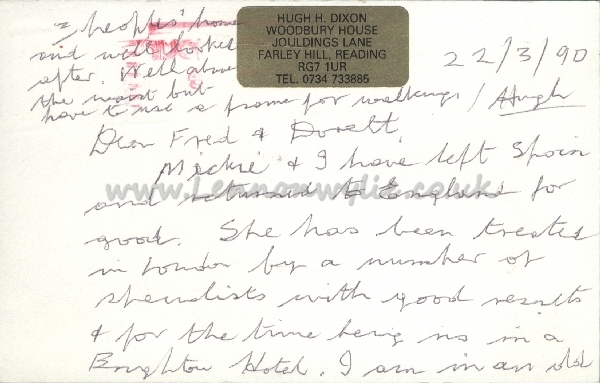 HUGH H. DIXON
WOODBURY HOUSE
JOULDINGS LANE
FARLEY HILL, READING
RG7 1UR
TEL. 0734 733885
22/3/90
Dear Fred &
Mickie & I have left Spain
and returned to England for
good. She has been treated
in London by a number of
specialists with good results
& for the time being is in a
Brighton Hotel. I am in an old
peoples' home
and well looked
after. Well above
the waist but
have to use a frame for walking / Hugh
www.Lennonwylie.co.uk